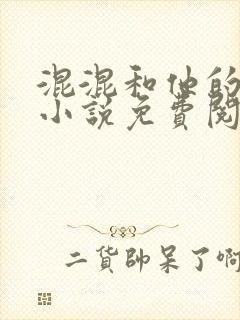 混混和他的
小說免費閱
二貨帥呆了啊